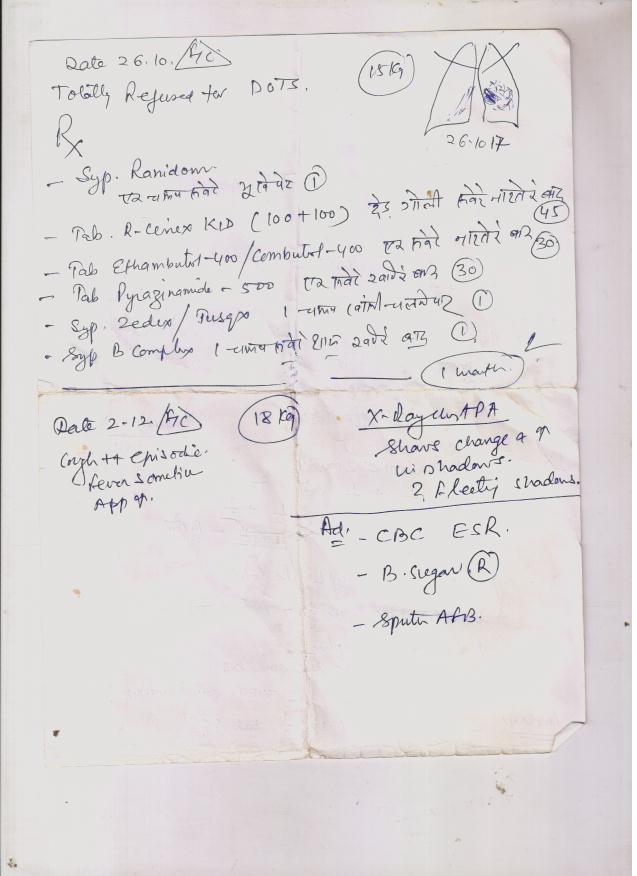 Date 26.10. F/C
15 Kg
Totally Refused for DOTS.
26.10.17
Rx
- Syp. Ranidom
एक चम्मच सवेरे भूखे पेट 1
- Tab. R-Cinex KID (100+100) डेढ़ गोली सवेरे नाश्ते के बाद 45
- Tab Ethambutol-400/Combutol-400 एक सवेरे नाश्ते के बाद 30
- Tab Pyrazinamide - 500 एक सवेरे खाने के बाद 30
- Syp. Zedex/Tusqx 1-चम्मच खाँसी चलने पर 1
- Syp B Complex 1-चम्मच सवेरे शाम खाने के बाद 1
1 month
Date 2-12. F/C
18 Kg
Cough ++ episodic.
fever sometime
App
X-Ray chest PA
Shows change
in shadows.
? fleeting shadows.
Ad.
- CBC ESR.
- B. Sugar R
- Sputum AFB.